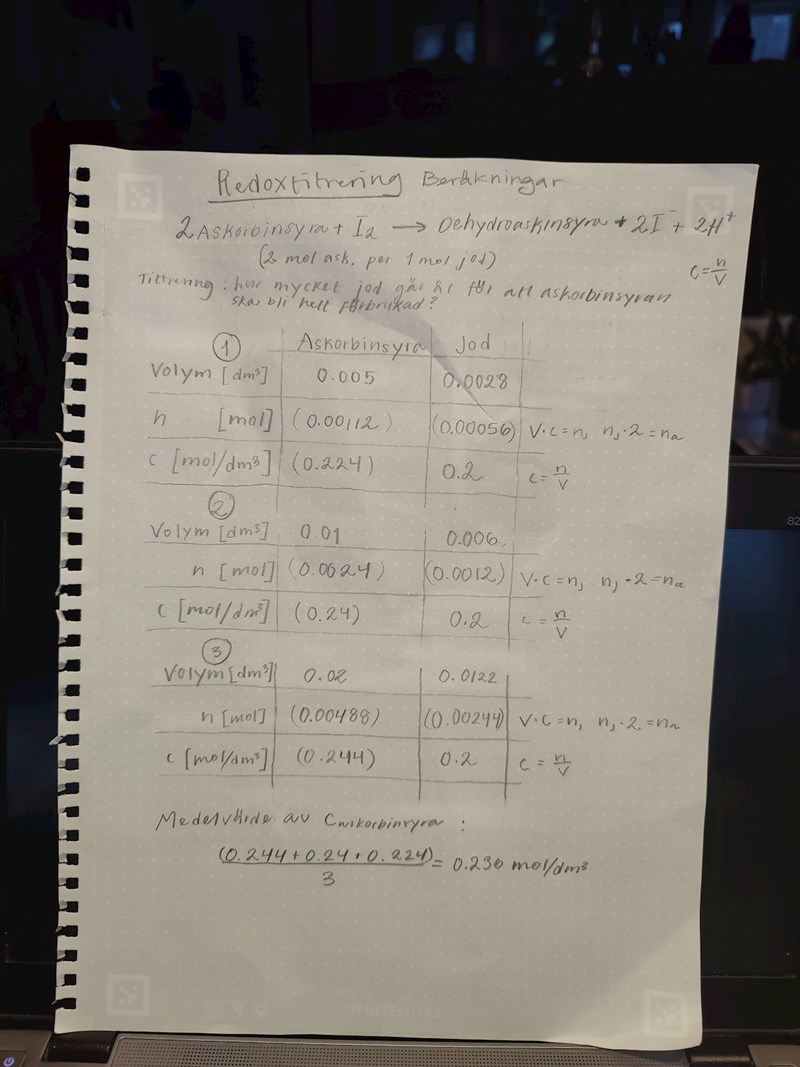 Redoxtitrering Beräkningar
2 Askorbinsyra + I₂ → Dehydroaskinsyra + 2I⁻ + 2H⁺
(2 mol ask. per 1 mol jod)
c = n/V
Tittrering : hur mycket jod går åt för att askorbinsyran
ska bli helt förbrukad?
① Askorbinsyra Jod
Volym [dm³] 0.005 0.0028
n [mol] (0.00112) (0.00056) V·c=n, nⱼ·2=nₐ
c [mol/dm³] (0.224) 0.2 c = n/V
②
Volym [dm³] 0.01 0.006
n [mol] (0.0024) (0.0012) V·c=n, nⱼ·2=nₐ
c [mol/dm³] (0.24) 0.2 c = n/V
③
Volym [dm³] 0.02 0.0122
n [mol] (0.00488) (0.00244) V·c=n, nⱼ·2=nₐ
c [mol/dm³] (0.244) 0.2 c = n/V
Medelvärde av Caskorbinsyra :
(0.244+0.24+0.224)/3 = 0.236 mol/dm³
WHITELINES
82